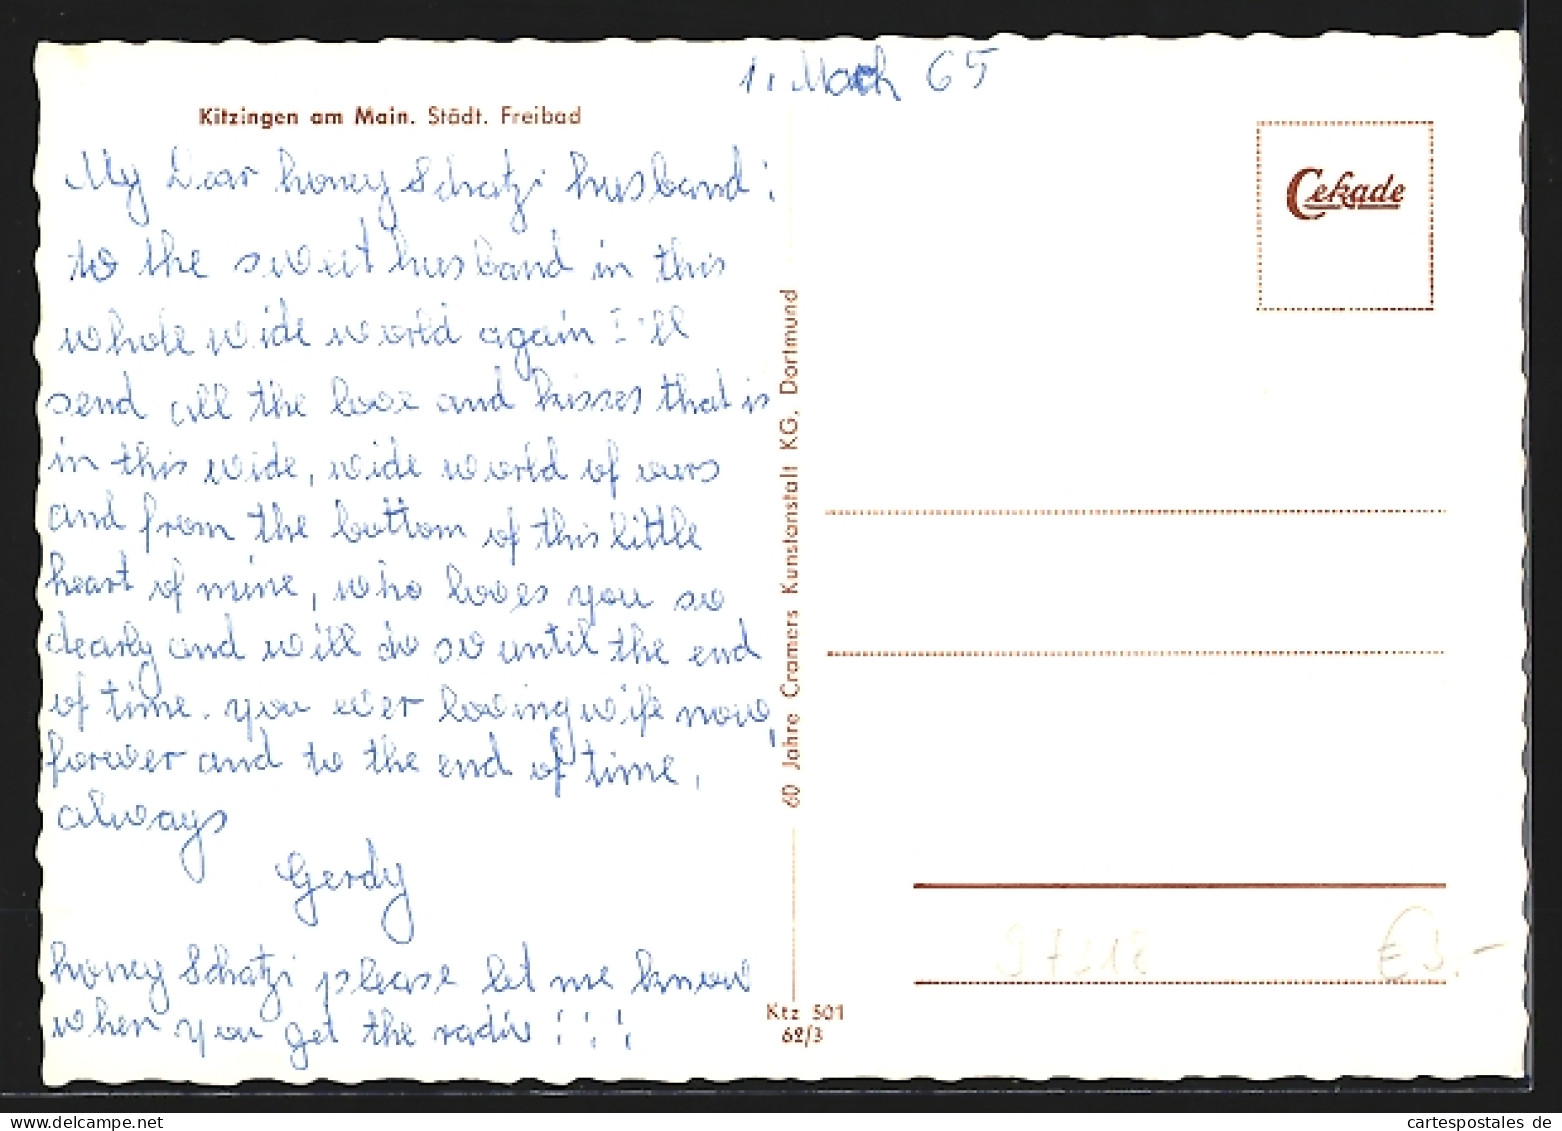 1. March 65
Kitzingen am Main. Städt. Freibad
My Dear honey Schatzi husband!
to the sweet husband in this
whole wide world again I'll
send all the love and kisses that is
in this wide, wide world of ours
and from the bottom of this little
heart of mine, who loves you so
dearly and will do so until the end
of time. you ever loving wife now,
forever and to the end of time,
always
Gerdy
honey Schatzi please let me know
when you get the radio !!!
60 Jahre Cramers Kunstanstalt KG, Dortmund
Ktz 501
62/3
Cekade
97318
€3.-
cartespostales de